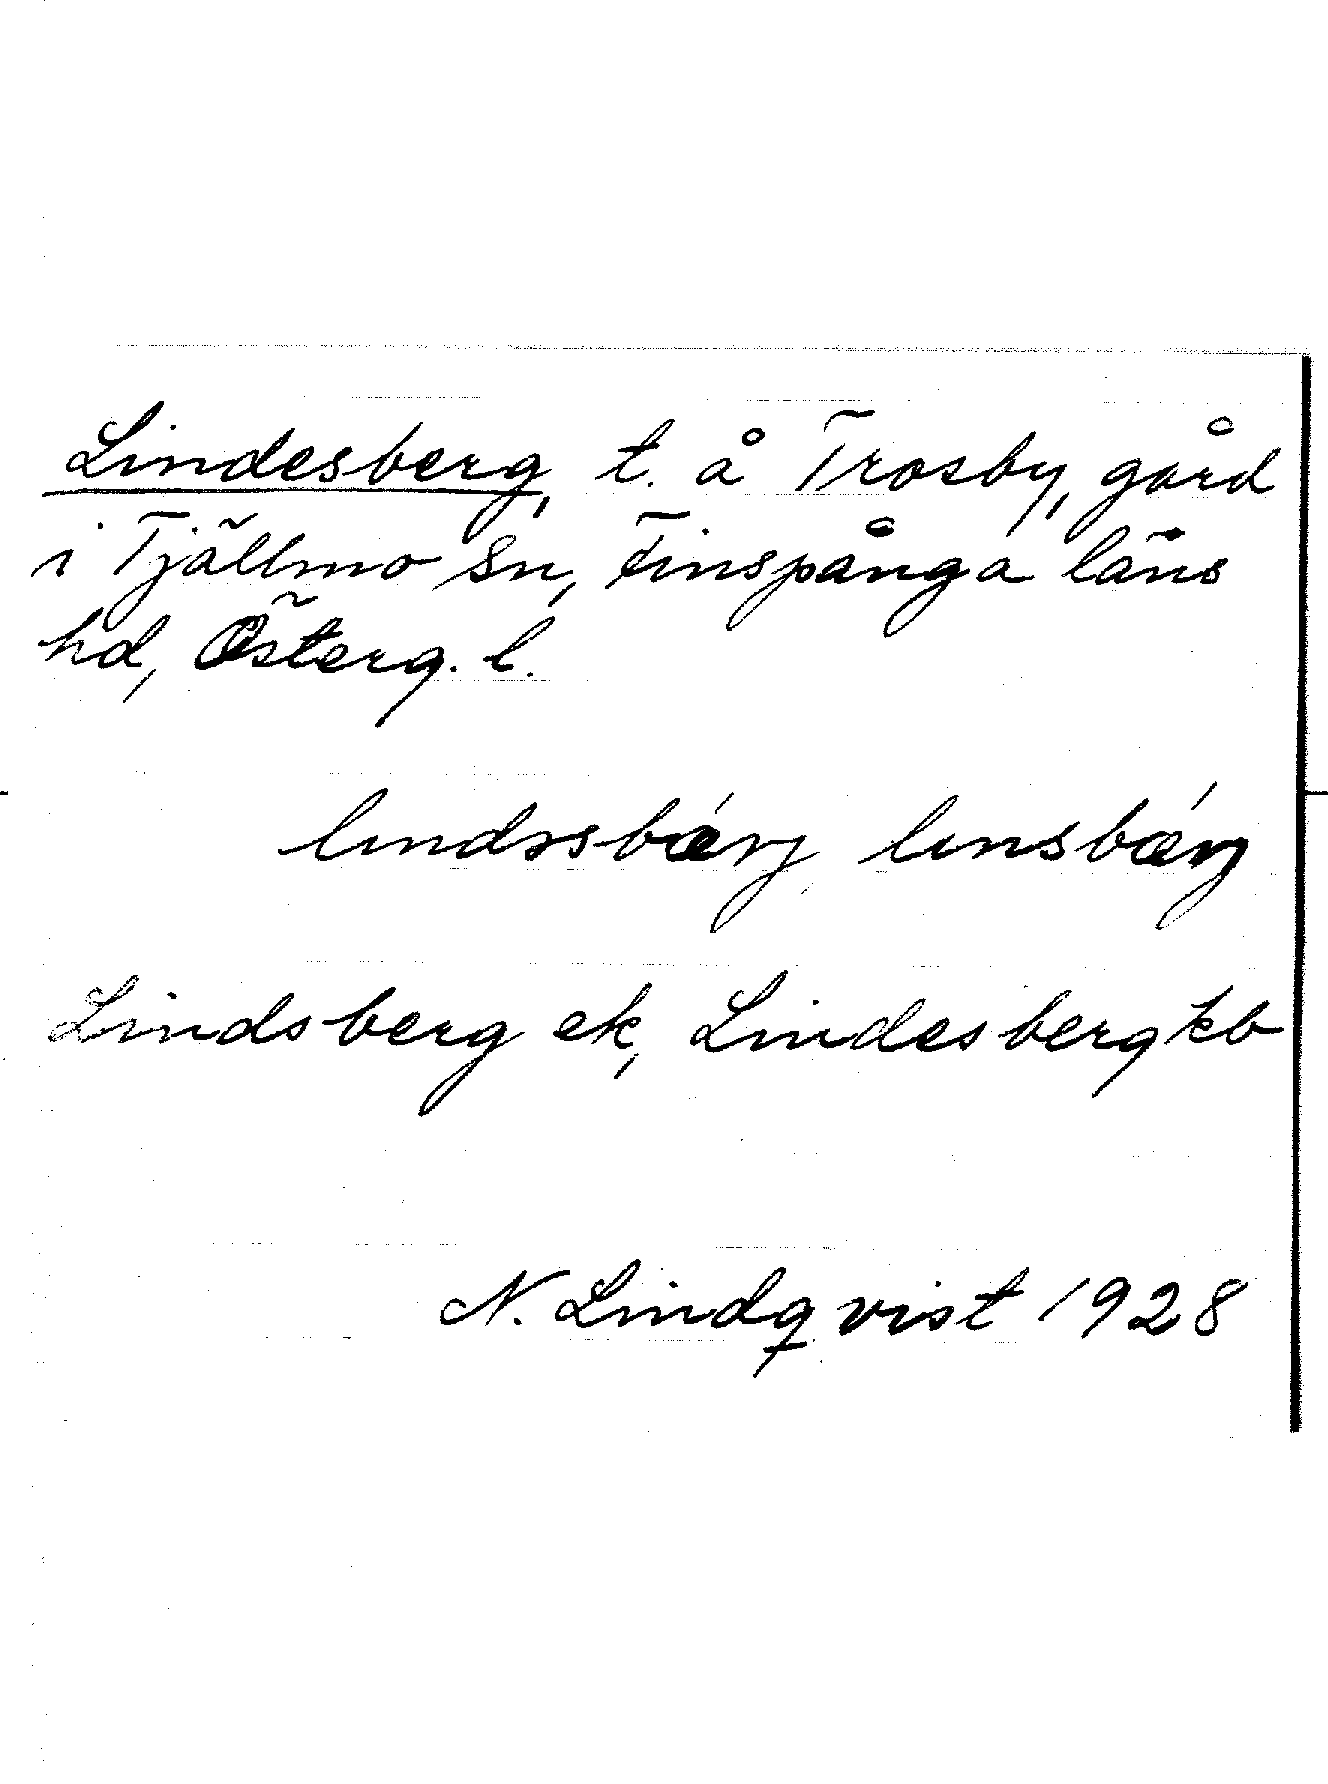 Lindesberg, t. å Trosby, gård
i Tjällmo sn, Finspånga läns
hd, Österg. l.
lındɜsbærj, lınsbærj
Lindsberg ek, Lindesberg kb
N. Lindqvist 1928